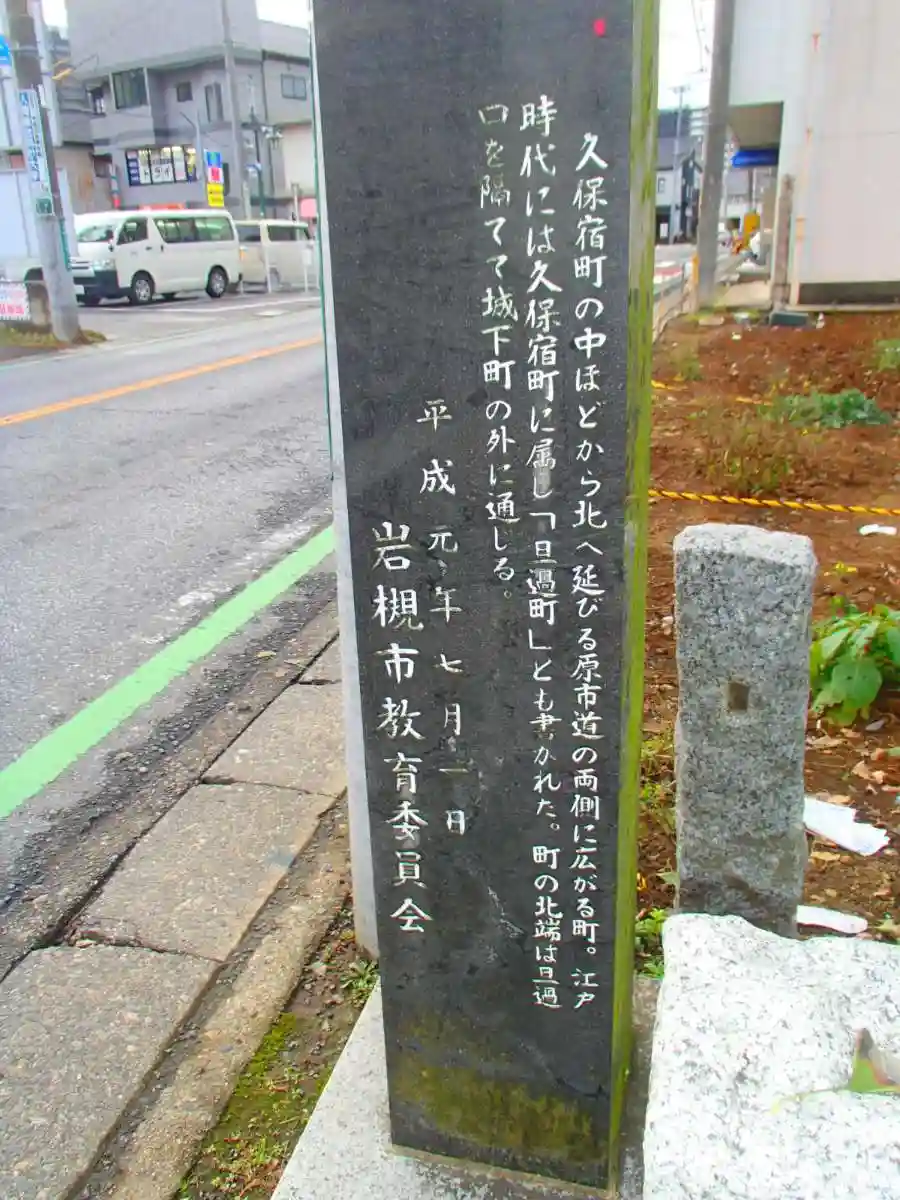 久保宿町の中ほどから北へ延びる原市道の両側に広がる町。江戸
時代には久保宿町に属し「旦過町」とも書かれた。町の北端は旦過
口を隔てて城下町の外に通じる。
平成元年七月一日
岩槻市教育委員会
トライ